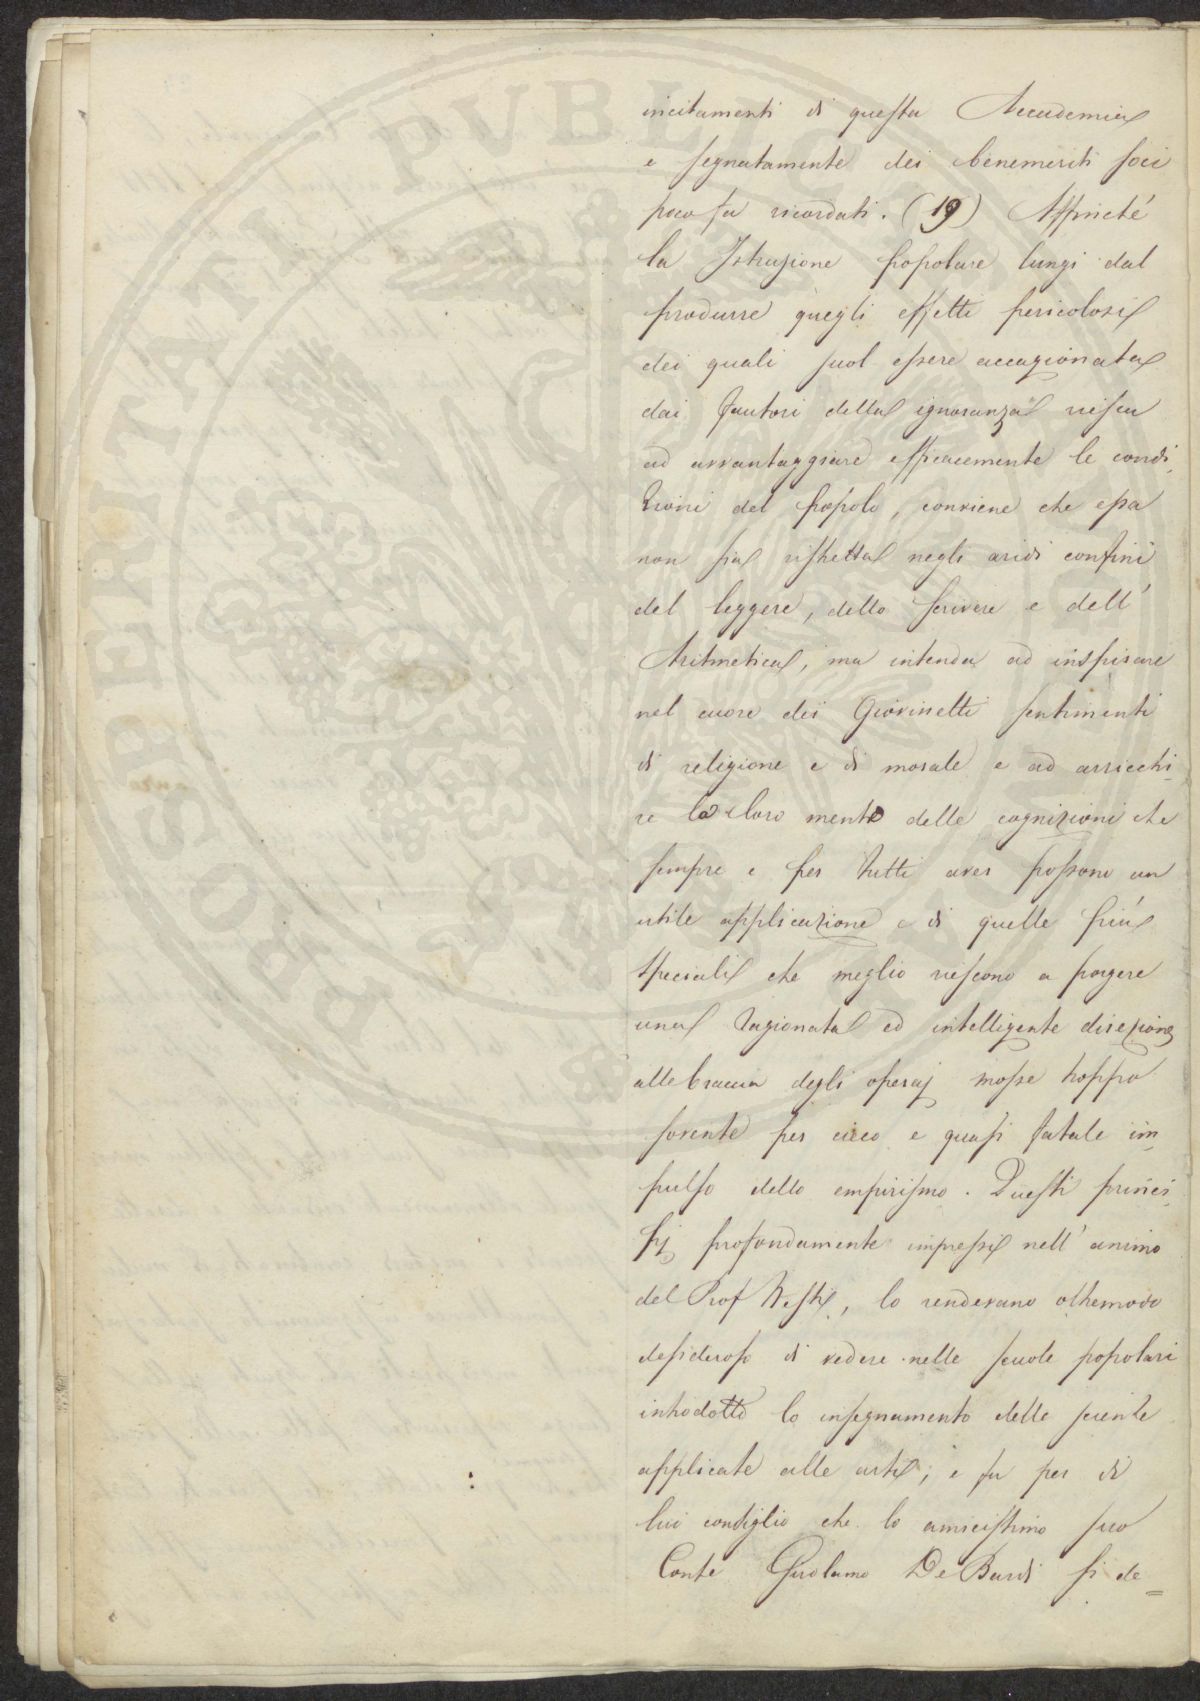 incitamenti di questa Accademia
e segnatamente dei benemeriti soci
poco fa ricordati. (19) Affinché
la Istruzione popolare lungi dal
produrre quegli effetti pericolosi
dei quali suol essere accagionata
dai fautori della ignoranza riesca
ad avvantaggiare efficacemente le condi
zioni del popolo, conviene che essa
non sia ristretta negli aridi confini
del leggere, dello scrivere e dell'
Aritmetica, ma intenda ad inspirare
nel cuore dei Giovinetti sentimenti
di religione e di morale e ad arricchi
re la loro mente delle cognizioni che
sempre e per tutti aver possono un
utile applicazione e di quelle più
speciali che meglio riescono a porgere
una ragionata ed intelligente direzione
alle braccia degli operaj mosse troppo
sovente per cieco e quasi fatale im
pulso dello empirismo. Questi princi
pj profondamente impressi nell'animo
del Prof Nesti, lo rendevano oltremodo
desideroso di vedere nelle scuole popolari
introdotto lo insegnamento delle scienze
applicate alle arti; e fu per di
lui consiglio che lo amicissimo suo
Conte Girolamo De Bardi si de=